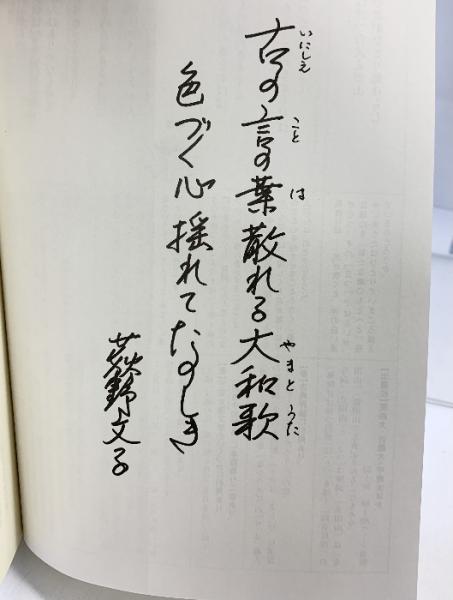 古の言の葉散れる大和歌
いにしえ
こと
は
やまとうた
色づく心揺れてなのしき
荻野文子